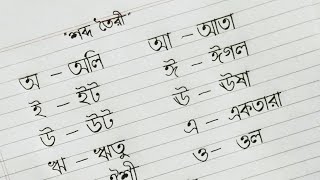 "শব্দ তৈরী"
অ – অলি
আ – আতা
ই – ইট
ঈ – ঈগল
উ – উট
ঊ – ঊষা
ঋ – ঋতু
এ – একতারা
ও – ওল